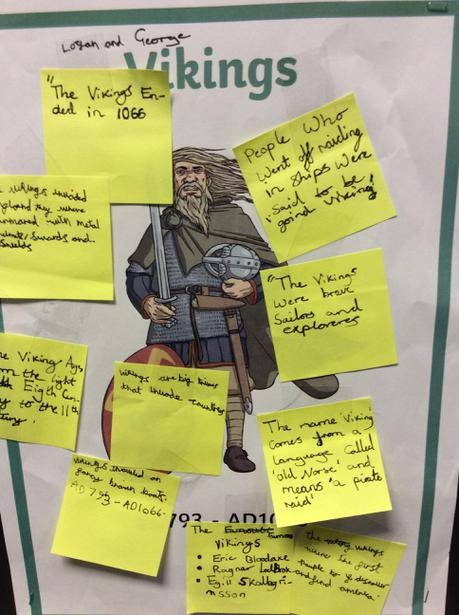 Logan and George
Vikings
"The Vikings En-
ded in 1066
People Who
Went off raiding
in ships were
said to be
"going Viking"
Vikings invaded
they were
armored with metal
swords and
"The Vikings
were brave
Sailors and
explorers
he Viking Age
om the
Eigth Cen
y to the 11th
Vikings are big
that invade countries
The name 'Viking
comes from a
language called
'Old Norse' and
means 'a pirate
raid'
Vikings travelled on
boats.
AD 793 - AD1066.
793 - AD10
The Famous
Vikings
• Eric Bloodaxe
• Ragnar Lodbrok
• Egill Skallagri-
msson
The vikings
were the first
people to discover
and find america.